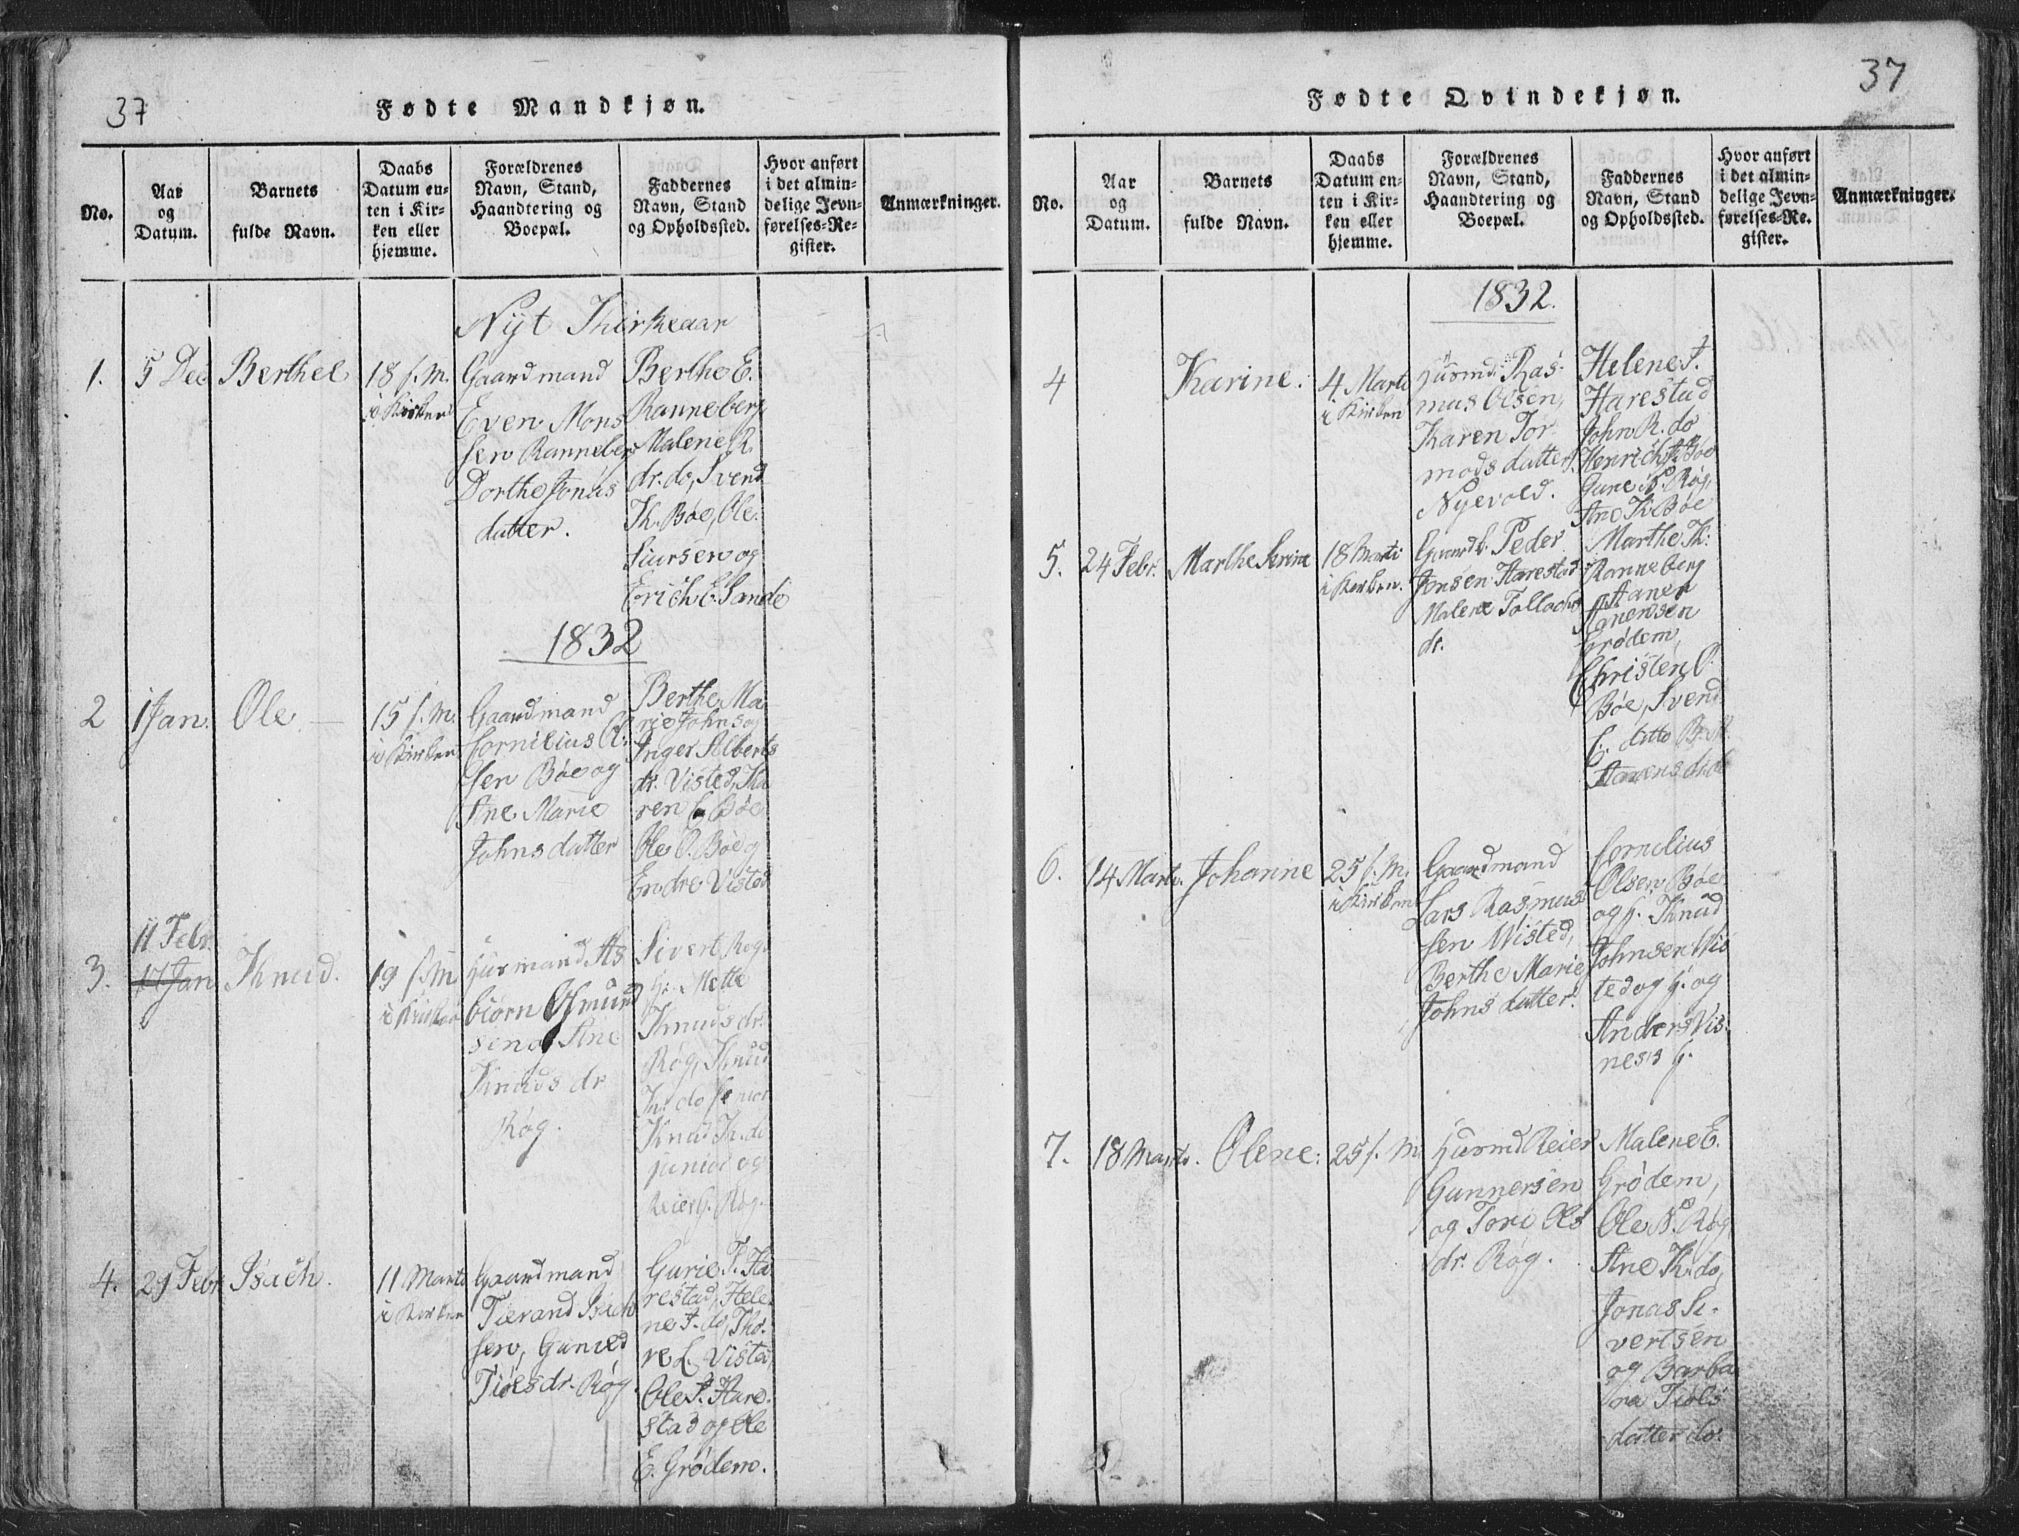 37
Fødte Mandkjøn.
No.
Aar
og
Datum.
Barnets
fulde Navn.
Daabs
Datum en-
ten i Kir-
ken eller
hjemme.
Forældrenes
Navn, Stand,
Haandtering og
Boepæl.
Faddernes
Navn, Stand
og Opholdssted.
Hvor anført
i det almin-
delige Jevn-
førelses-Re-
gister.
Anmærkninger.
Nÿt Kirkeaar
1.
5 Dec
Berthel
18 f. M.
i Kirken
Gaardmand
Even Mons
sen Ranneberg
Dorthe Jonas
datter.
Berthe E.
Ranneberg
Malene R.
dr. do, Svend
Th. Bøe, Ole
Siursen og
Erich E. Sande
1832
2
1 Jan.
Ole
15 f. M.
i Kirken
Gaardmand
Cornelius Ol
sen Bøe og
Ane Marie
Johns datter
Berthe Ma
rie Johns og
Inger Alberts
dr. Visted, Ka
ren C. Bøe
Ole O. Bøe og
Endre Visted
11 Febr.
3.
17 Jan
Knud.
19 f. M
i Kirken
Husmand As
biørn Osmund
sen og Ane
Knuds dr
Røg.
Sivert Røg
Mette
Knuds dr.
Røg, Knud
K. do senior
Knud K. do
junior og
Reier G. Røg.
4.
29 Febr
Isach.
11 Marts
i Kirken
Gaardmand
Tierand Isach
sen, Guned
Tiøesdr. Røg.
Gurie T. Ha
restad, Hele
ne T. do, Tho
re L. Visted
Ole T. Hare
stad og Ole
E. Grødem.
37
Fødte Qvindekjøn.
No.
Aar
og
Datum.
Barnets
fulde Navn.
Daabs
Datum en-
ten i Kir-
ken eller
hjemme.
Forældrenes
Navn, Stand,
Haandtering og
Boepæl.
Faddernes
Navn, Stand
og Opholdssted.
Hvor anført
i det almin-
delige Jevn-
førelses-Re-
gister.
Anmærkninger.
1832.
4
Karine.
4 Marts
i Kirken
Husmd. Ras-
mus Olsen,
Karen Tor
mods datter
Nyevold.
Helene T.
Harestad
John R. do
Henrich A. Bøe
June N. Røg,
Ane K. Bøe
5.
24 Febr.
Marthe Serine
18 Marts
i Kirken.
Gaardb. Peder
Jensen Harestad
Malene Tollachs
dr.
Marthe K.
Ranneberg
Aanen
Aanensen
Grødem,
Christen O.
Bøe, Svend
E. ditto
6.
14 Marts.
Johanne
25 f. M.
i Kirken
Gaardmand
Lars Rasmus
sen Wisted,
Berthe Marie
Johns datter.
Cornelius
Olsen Bøe
og h. Knud
Johnsen Vis
ted og h. og
Anders Vis
ness h.
7.
18 Marts.
Olene.
25 f. M
Husmd Reier
Gunnersen
og Tori Ols
dr. Røg.
Malene E.
Grødem,
Ole N. Røg
Ane K. do,
Jonas Si-
vertsen
og Barba
ra Tiøls
datter do.